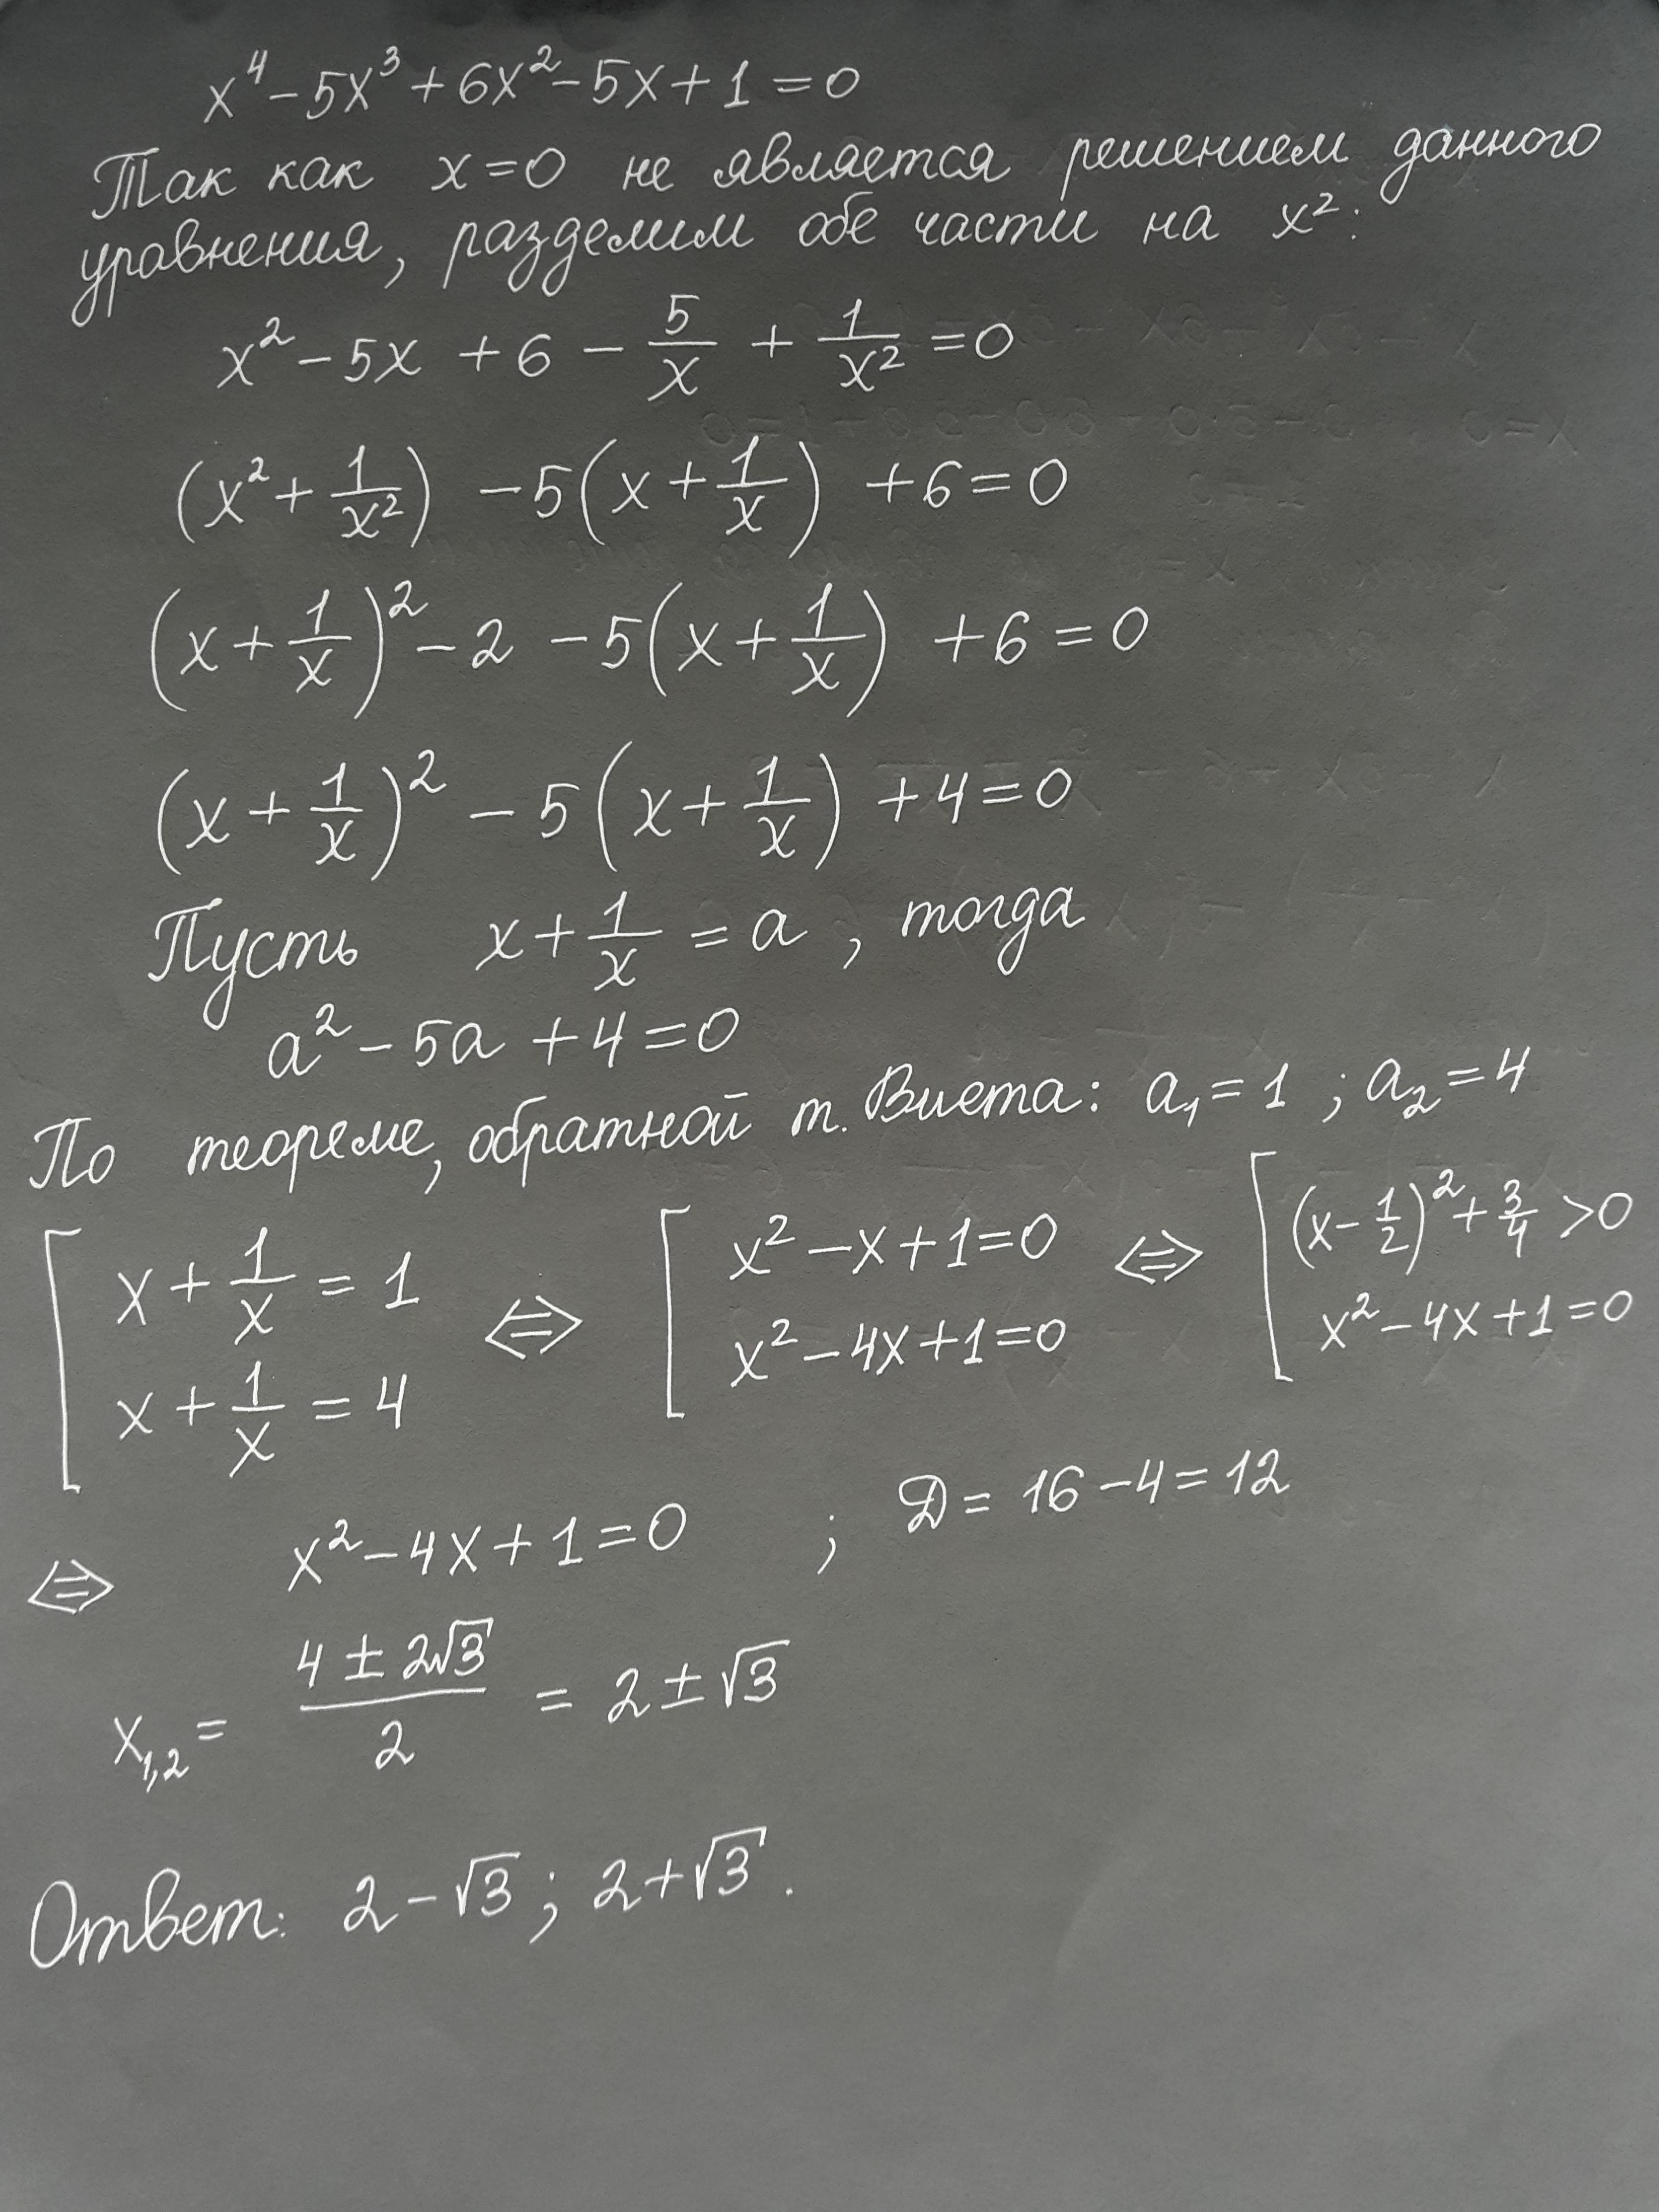 x⁴ – 5x³ + 6x² – 5x + 1 = 0
Так как x = 0 не является решением данного
уравнения, разделим обе части на x²:
x² – 5x + 6 – 5/x + 1/x² = 0
(x² + 1/x²) – 5(x + 1/x) + 6 = 0
(x + 1/x)² – 2 – 5(x + 1/x) + 6 = 0
(x + 1/x)² – 5(x + 1/x) + 4 = 0
Пусть x + 1/x = a, тогда
a² – 5a + 4 = 0
По теореме, обратной т. Виета: a₁ = 1; a₂ = 4
[ x + 1/x = 1 ⇔ [ x² – x + 1 = 0 ⇔ [ (x – 1/2)² + 3/4 > 0
x + 1/x = 4 x² – 4x + 1 = 0 x² – 4x + 1 = 0
⇔ x² – 4x + 1 = 0 ; D = 16 – 4 = 12
x₁,₂ = (4 ± 2√3)/2 = 2 ± √3
Ответ: 2 – √3; 2 + √3.